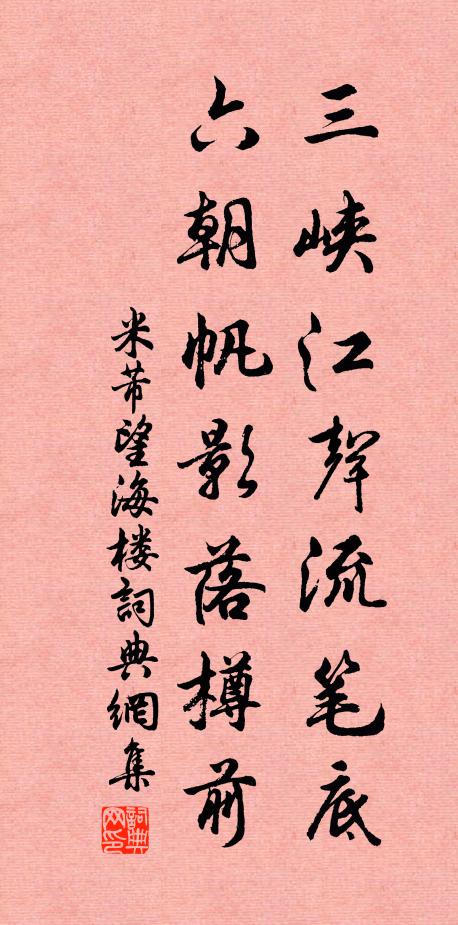 三峡江聲流笔底
六朝帆影落樽前
米芾望海楼詞典網集
詞典网印